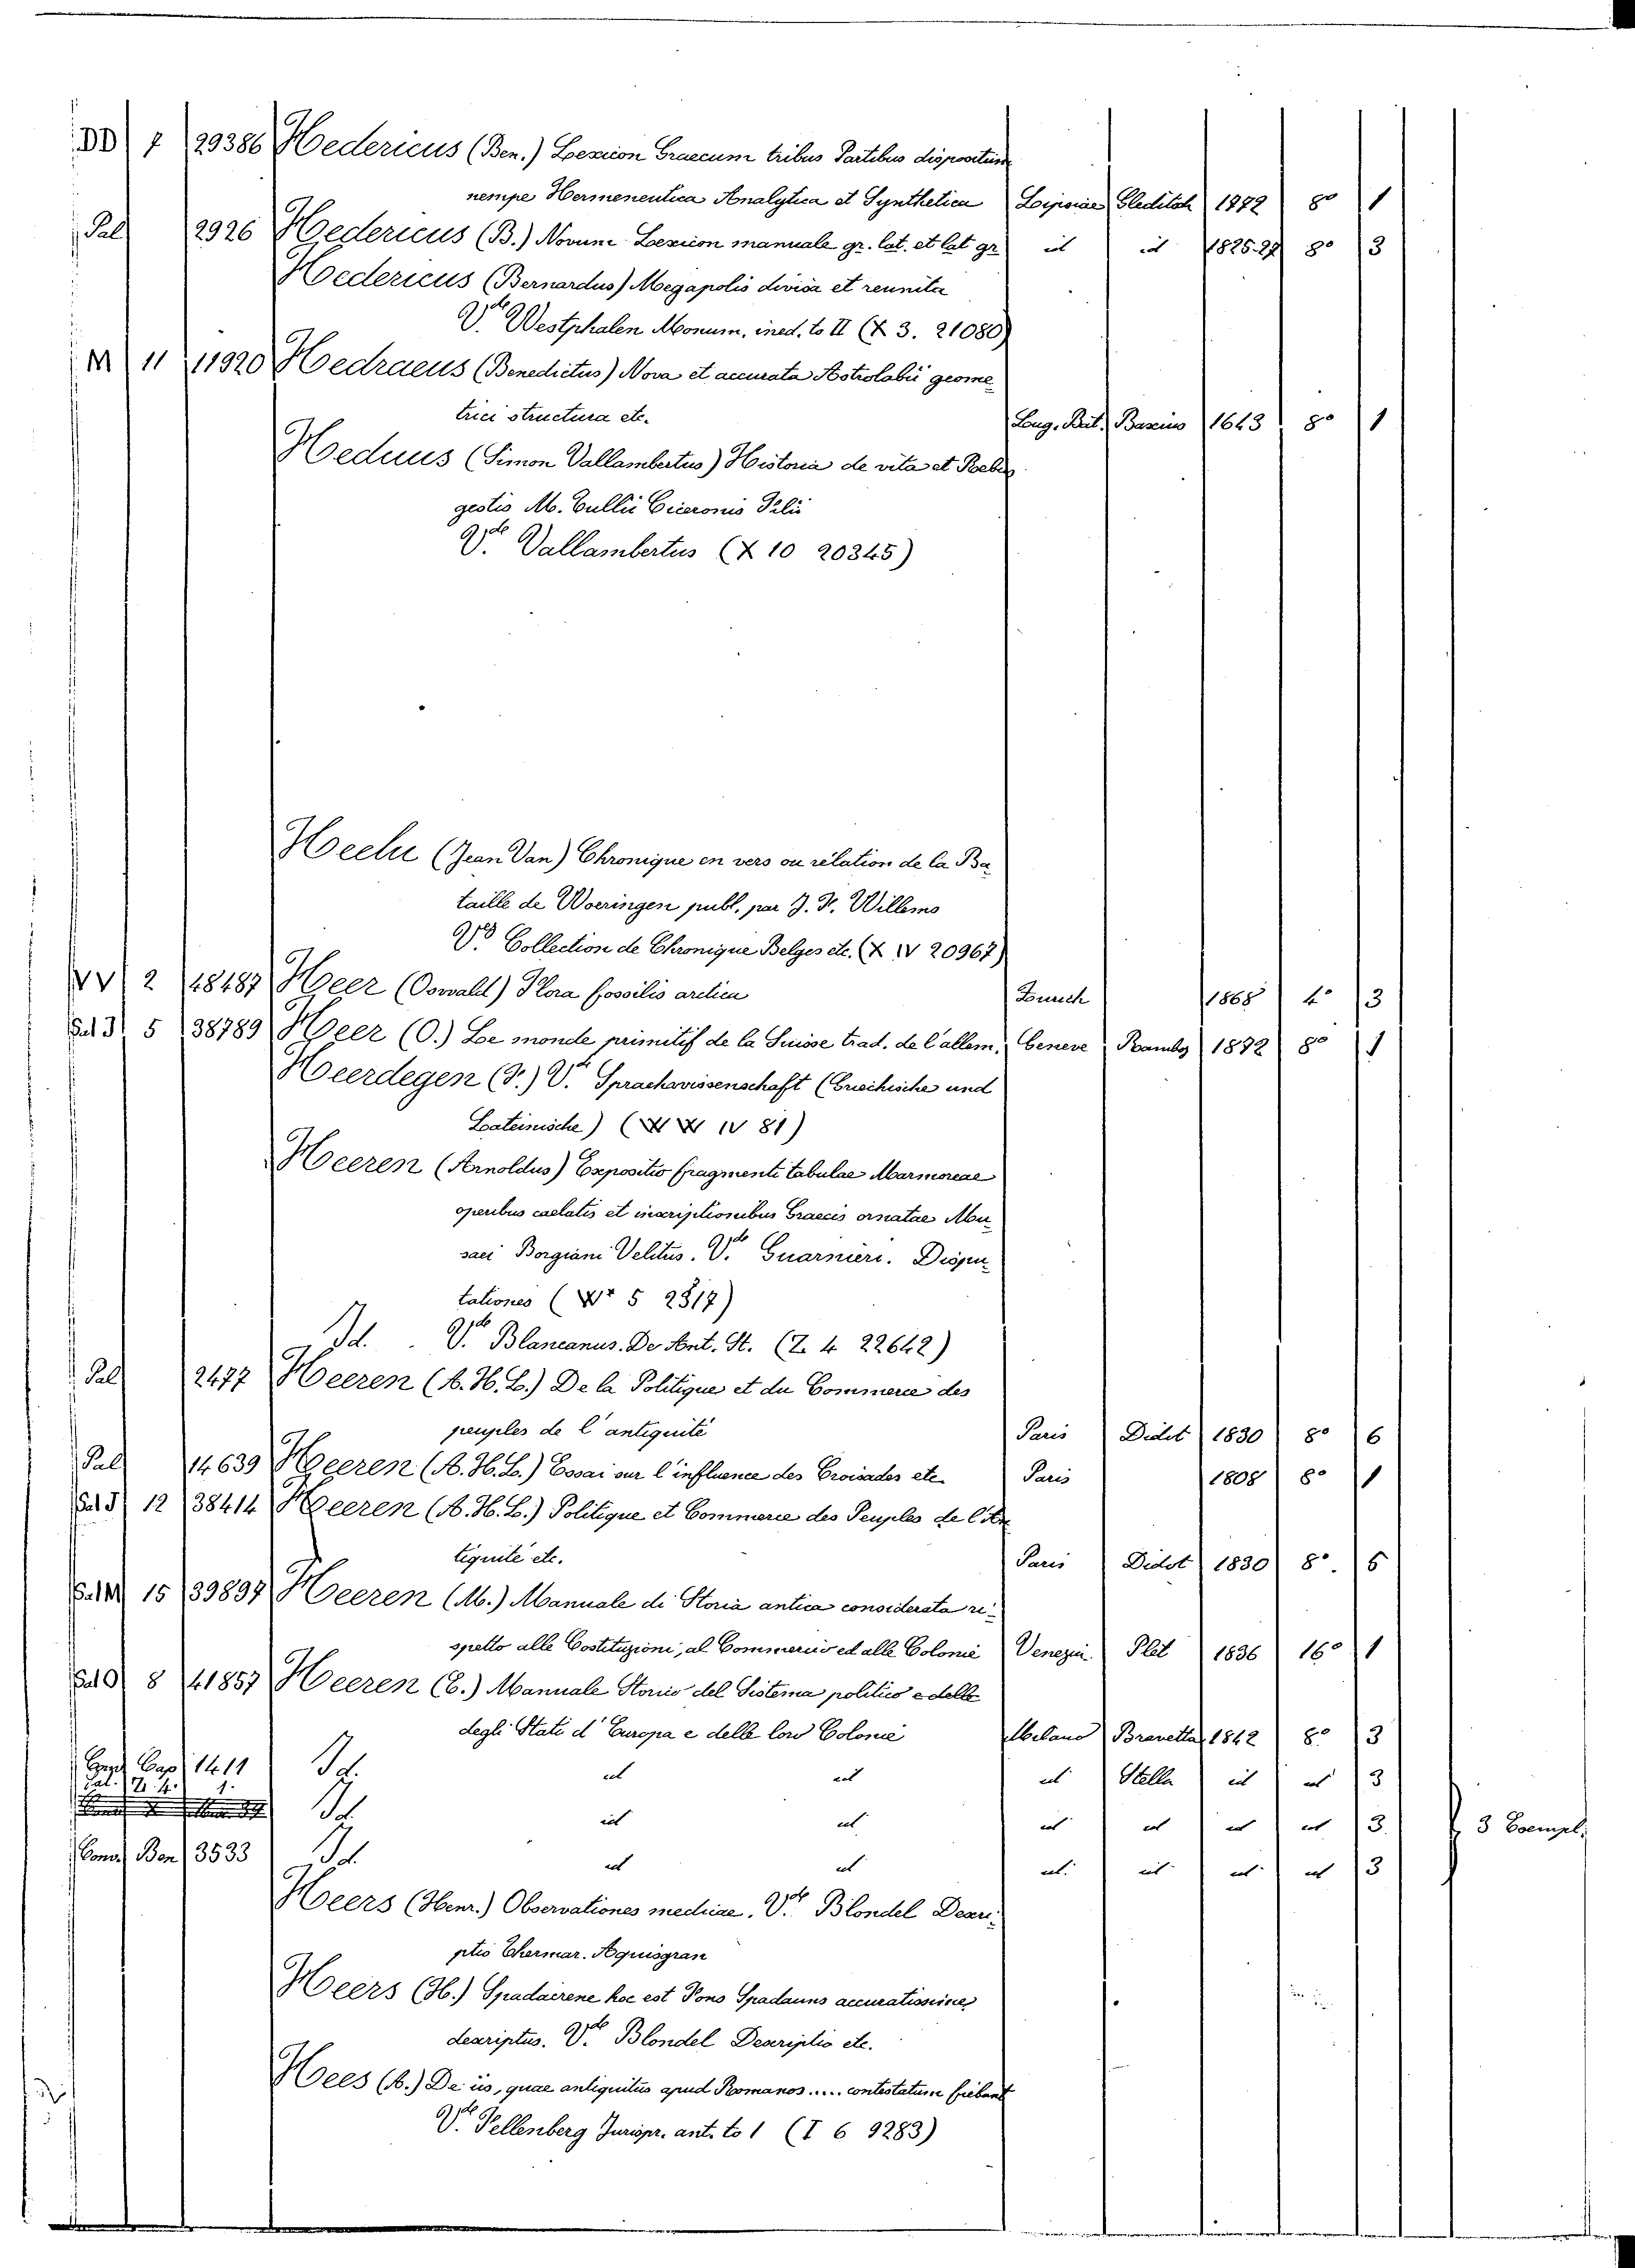 DD 7 29386 Hedericus (Ben.) Lexicon Graecum tribus Partibus dispositum
nempe Hermeneutica Analytica et Synthetica Lipsiae Gleditch 1772 8° 1
Pal 2926 Hedericus (B.) Novum Lexicon manuale gr. lat. et lat gr id id 1825.27 8° 3
Hedericus (Bernardus) Megapolis divisa et reunita
V.de Westphalen Monum. ined. to II (X 3. 21080)
M 11 11920 Hedraeus (Benedictus) Nova et accurata Astrolabii geome
trici structura etc. Lug. Bat. Basius 1643 8° 1
Heduus (Simon Vallambertus) Historia de vita et Rebus
gestis M. Tullii Ciceronis Filii
V.de Vallambertus (X 10 20345)
Heelu (Jean Van) Chronique en vers ou relation de la Ba
taille de Woeringen publ. par J. F. Willems
V.de Collection de Chronique Belges etc. (X IV 20967)
VV 2 48487 Heer (Oswald) Flora fossilis arctica Zurich 1868 4° 3
Pal 3 5 38789 Heer (O.) Le monde primitif de la Suisse trad. de l'allem. Geneve Ramboz 1872 8° 1
Heerdegen (F.) V. Sprachwissenschaft (Griechische und
Lateinische) (W W IV 81)
Heeren (Arnoldus) Expositio fragmenti tabulae Marmoreae
operibus caelatis et inscriptionibus Graecis ornatae Mu
saei Borgiani Velitus. V.de Guarnieri. Dispu
tationes (W* 5 2817)
Id. V.de Blancanus. De Ant. St. (Z. 4 22642)
Pal 2477 Heeren (A. H. L.) De la Politique et du Commerce des
peuples de l'antiquité Paris Didot 1830 8° 6
Pal 14639 Heeren (A. H. L.) Essai sur l'influence des Croisades etc Paris 1808 8° 1
12 38414 Heeren (A. H. L.) Politique et Commerce des Peuples de l'An
tiquité etc. Paris Didot 1830 8°. 6
Pal M 15 39897 Heeren (M.) Manuale di Storia antica considerata ri-
spetto alle Costituzioni, al Commercio ed alle Colonie Venezia. Plet 1836 16° 1
Pal O 8 41857 Heeren (E.) Manuale Storico del Sistema politico e delle
degli Stati d'Europa e delle loro Colonie Milano Bravetta 1842 8° 3
Cap 1411 Id. id id id Stella id id 3
Pal. Z. 4. 1.
Id. id id id id id id 3 3 Esempl.
Conv. Ben 3533 Id. id id id. id id id 3
Heers (Henr.) Observationes medicae. V.de Blondel Descri-
ptio Thermar. Aquisgran
Heers (H.) Spadacrene hoc est Fons Spadanus accuratissime
descriptus. V.de Blondel Descriptio etc.
Hees (A.) De iis, quae antiquitus apud Romanos ..... contestatum fiebant
V.de Fellenberg Jurispr. ant. to 1 (I 6 9283)